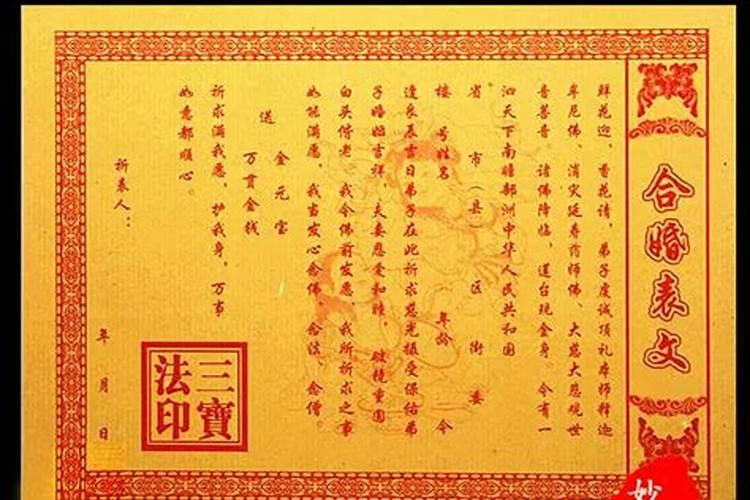 合婚表文
鲜花迎，香花请，弟子虔诚顶礼本师释迦
牟尼佛、消灾延寿药师佛、大慈大悲观世
音菩音。诸佛降临，道台现金身。今有一
泗天下南瞻部洲中华人民共和国
省 市（县 区 街 委
楼 号姓名 年龄 今
逢良辰吉日弟子在此祈求慈光摄受保佑弟
子婚姻吉祥，夫妻恩爱和睦，破镜重圆
白头偕老。我今佛前发愿，我所祈求之事
如能满愿，我当发心念佛、念法、念僧。
送 金元宝
万贯金钱
祈求满我愿，护我身，万事
如意都顺心。
祈表人：
年 月 日
三寶
法印
妙